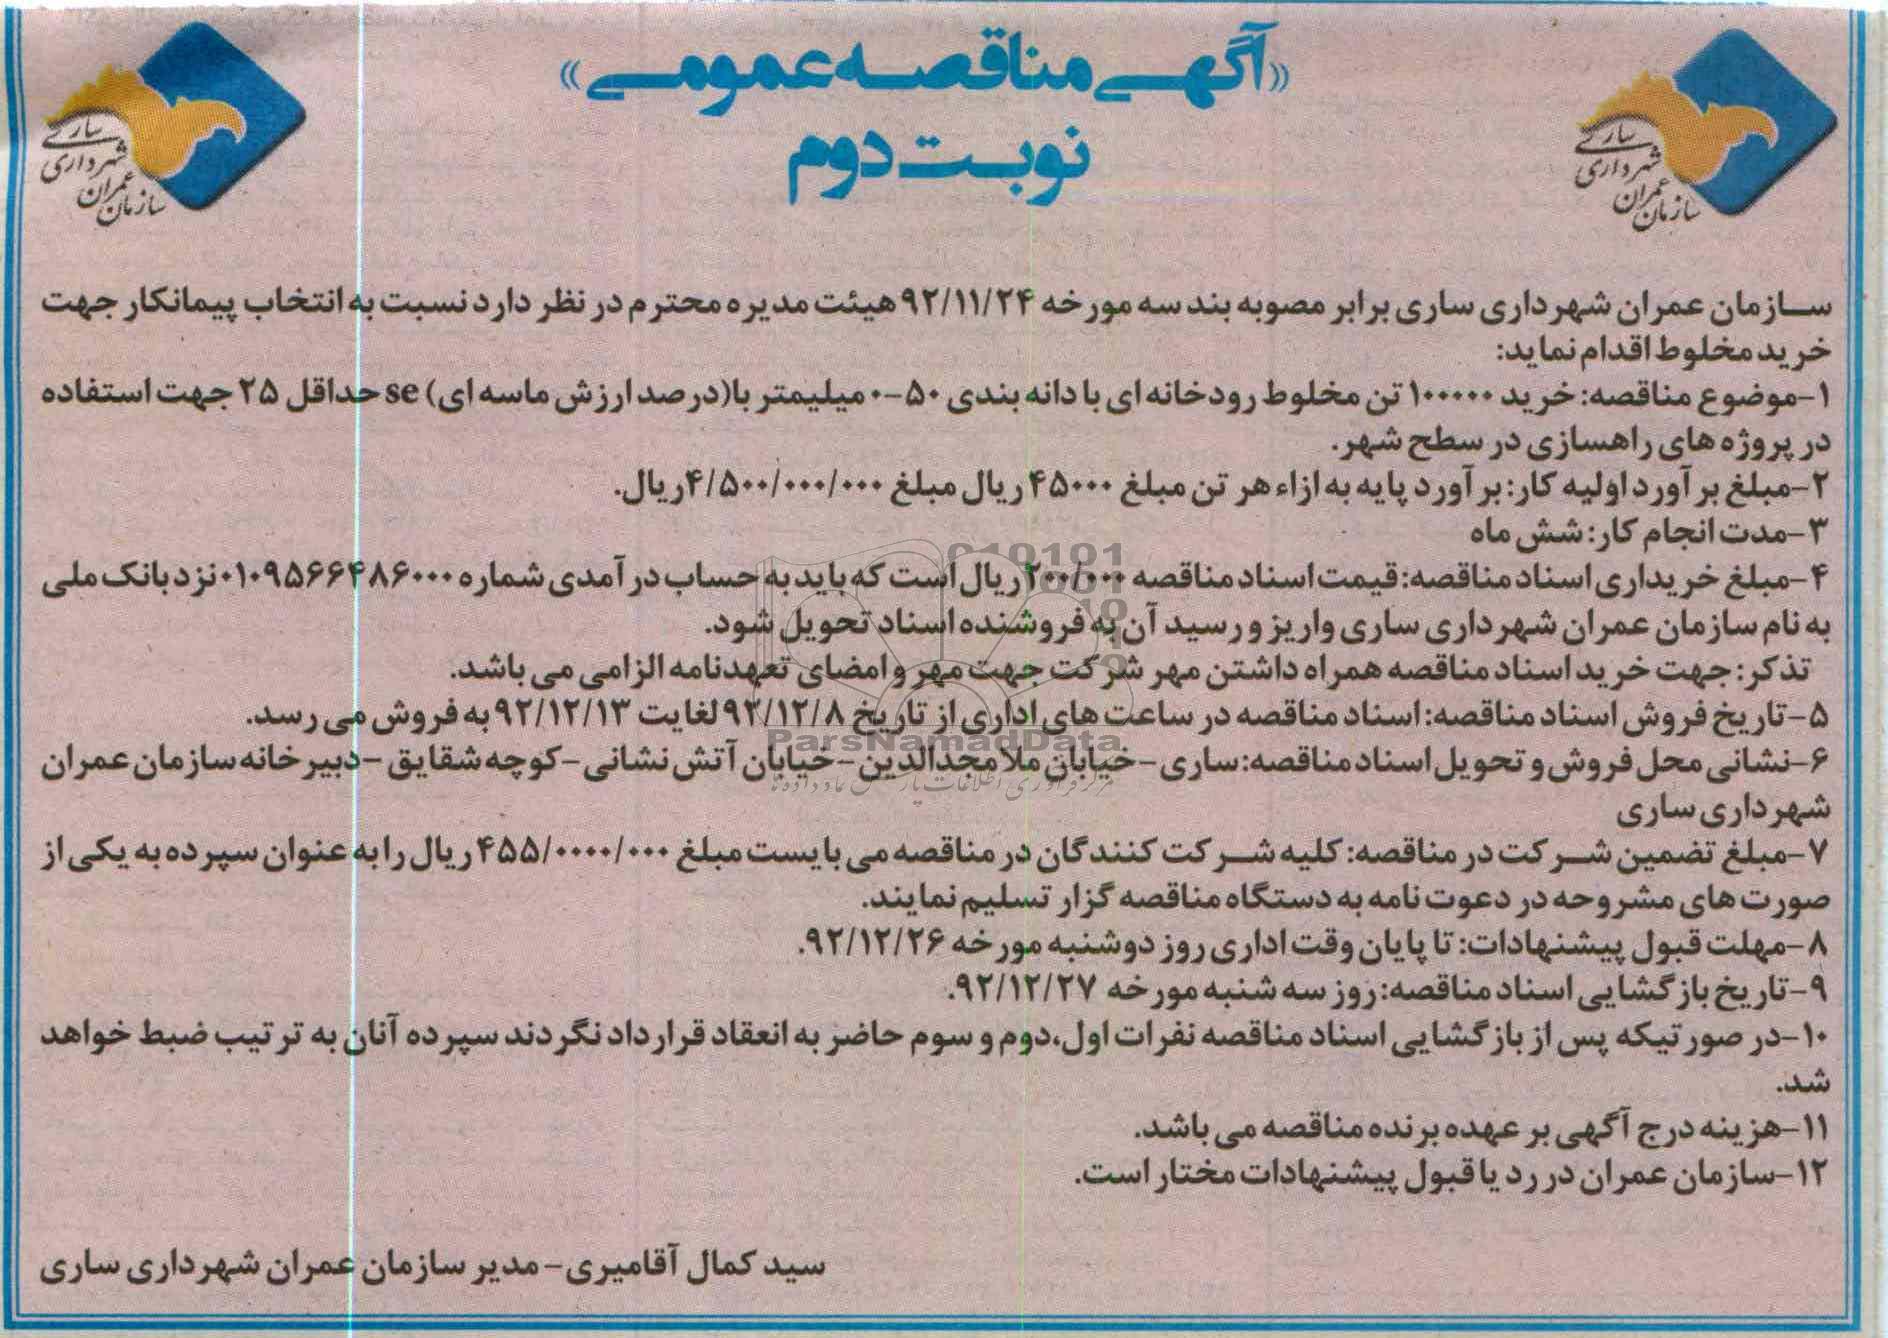 «آگهی مناقصه عمومی»
نوبت دوم
ساری
شهرداری
سازمان عمران
ساری
شهرداری
سازمان عمران
سازمان عمران شهرداری ساری برابر مصوبه بند سه مورخه ۹۲/۱۱/۲۴ هیئت مدیره محترم در نظر دارد نسبت به انتخاب پیمانکار جهت
خرید مخلوط اقدام نماید:
۱-موضوع مناقصه: خرید ۱۰۰۰۰۰ تن مخلوط رودخانه ای با دانه بندی ۵۰-۰ میلیمتر با(درصد ارزش ماسه ای) se حداقل ۲۵ جهت استفاده
در پروژه های راهسازی در سطح شهر.
۲-مبلغ برآورد اولیه کار: برآورد پایه به ازاء هر تن مبلغ ۴۵۰۰۰ ریال مبلغ ۴/۵۰۰/۰۰۰/۰۰۰ریال.
۳-مدت انجام کار: شش ماه
۴-مبلغ خریداری اسناد مناقصه: قیمت اسناد مناقصه ۲۰۰/۰۰۰ریال است که باید به حساب درآمدی شماره ۰۱۰۹۵۶۶۴۸۶۰۰۰ نزد بانک ملی
به نام سازمان عمران شهرداری ساری واریز و رسید آن به فروشنده اسناد تحویل شود.
تذکر: جهت خرید اسناد مناقصه همراه داشتن مهر شرکت جهت مهر و امضای تعهدنامه الزامی می باشد.
۵-تاریخ فروش اسناد مناقصه: اسناد مناقصه در ساعت های اداری از تاریخ ۹۲/۱۲/۸ لغایت ۹۲/۱۲/۱۳ به فروش می رسد.
ParsNamadData
۶-نشانی محل فروش و تحویل اسناد مناقصه: ساری-خیابان ملا مجدالدین-خیابان آتش نشانی-کوچه شقایق-دبیرخانه سازمان عمران
شهرداری ساری
۷-مبلغ تضمین شرکت در مناقصه: کلیه شرکت کنندگان در مناقصه می بایست مبلغ ۴۵۵/۰۰۰۰/۰۰۰ ریال را به عنوان سپرده به یکی از
صورت های مشروحه در دعوت نامه به دستگاه مناقصه گزار تسلیم نمایند.
۸-مهلت قبول پیشنهادات: تا پایان وقت اداری روز دوشنبه مورخه ۹۲/۱۲/۲۶.
۹-تاریخ بازگشایی اسناد مناقصه: روز سه شنبه مورخه ۹۲/۱۲/۲۷.
۱۰-در صورتیکه پس از بازگشایی اسناد مناقصه نفرات اول،دوم و سوم حاضر به انعقاد قرارداد نگردند سپرده آنان به ترتیب ضبط خواهد
شد.
۱۱-هزینه درج آگهی بر عهده برنده مناقصه می باشد.
۱۲-سازمان عمران در رد یا قبول پیشنهادات مختار است.
سید کمال آقامیری-مدیر سازمان عمران شهرداری ساری